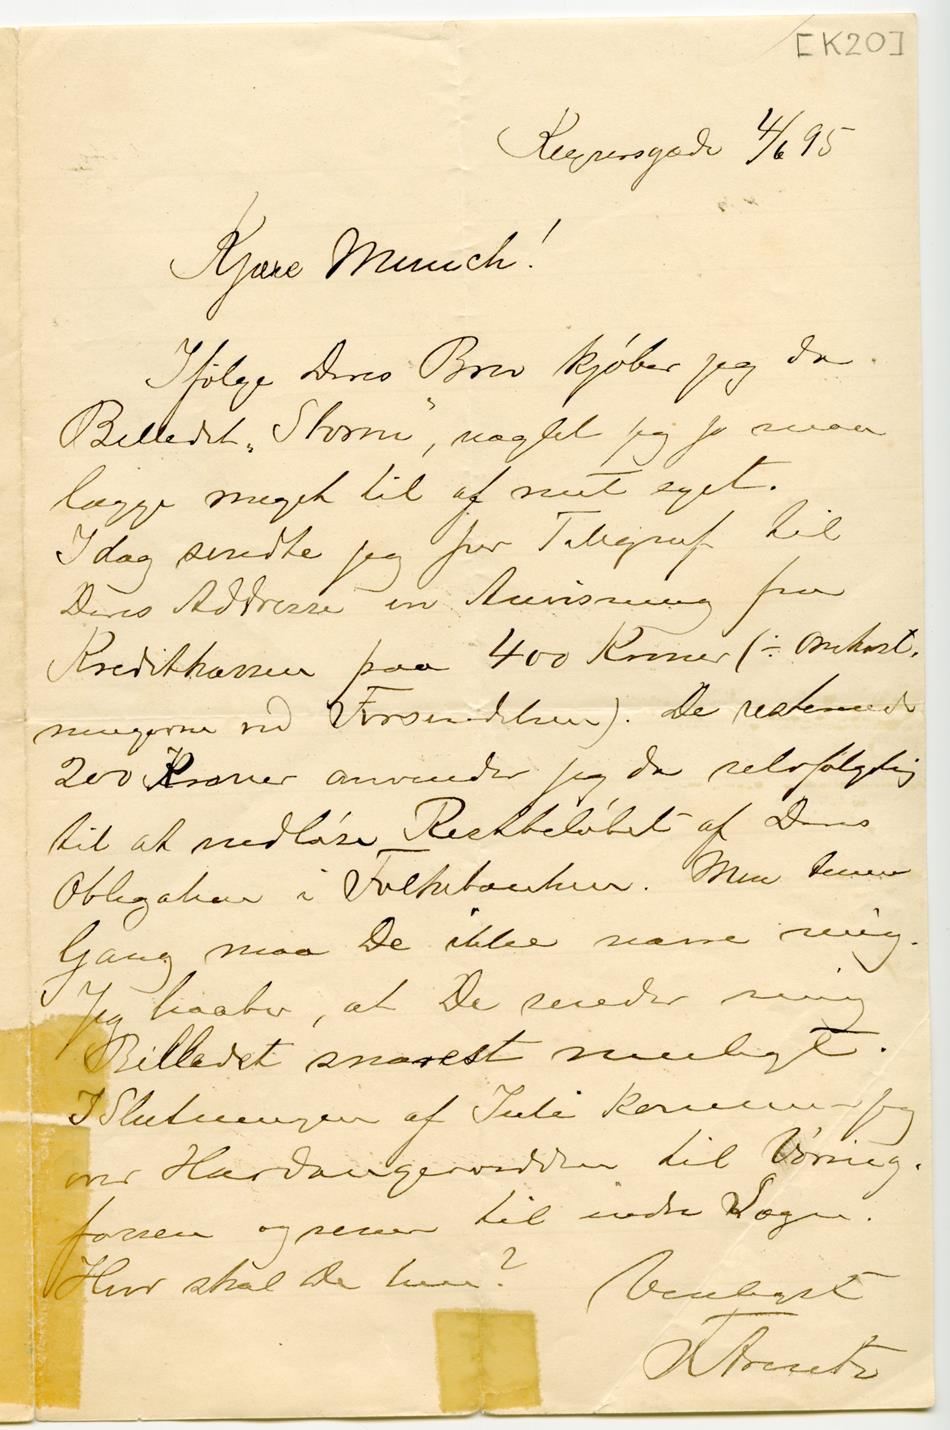 [K20]
Keysersgade 4/6 95
Kjære Munch!
Ifølge Deres Brev kjøber jeg da
Billedet „Storm“, uagtet jeg jo maa
lægge meget til af mit eget.
Idag sendte jeg per Telegraf til
Deres Addresse en Anvisning fra
Kreditkassen paa 400 Kroner (÷ Omkost-
ningerne ved Forsendelsen). De resterende
200 Kroner anvender jeg da selvfølgelig
til at indløse Restbeløbet af Deres
Obligation i Folkebanken. Men denne
Gang maa De ikke narre mig.
Jeg haaber, at De sender mig
Billedet snarest muligt.
I Slutningen af Juli kommer jeg
over Hardangervidden til Vøring-
fossen og senere til indre Sogn.
Hvor skal De hen?
Venligst
HArentz